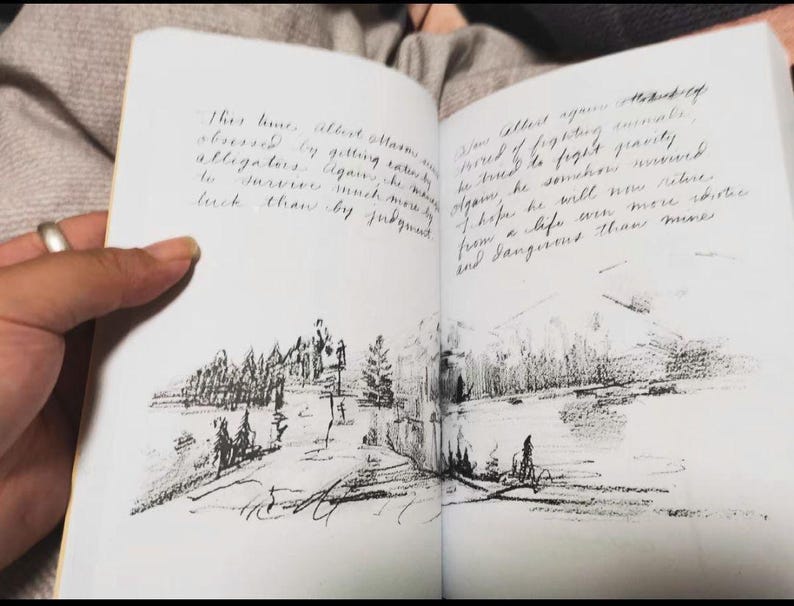 This time, Albert Mason
obsessed by getting eaten by
alligators. Again, he
to survive much more by
luck than by judgment.
Albert again
Bored of fighting animals,
he tried to fight gravity
Again, he somehow survived
I hope he will now retire
from a life even more idiotic
and dangerous than mine